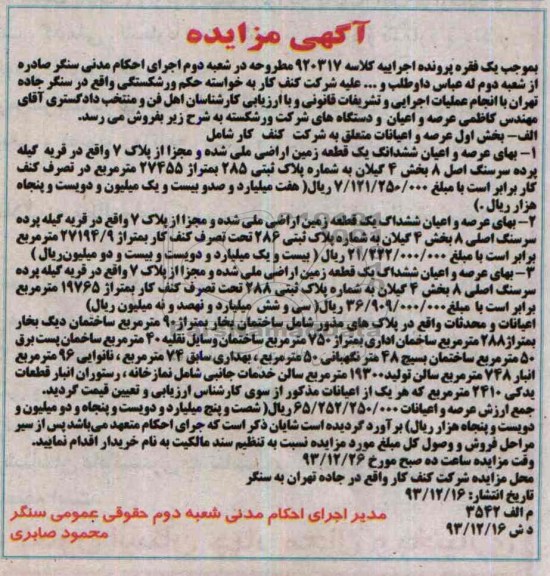 آگهی مزایده
بموجب یک فقره پرونده اجراییه کلاسه ۹۲۰۳۱۷ مطروحه در شعبه دوم اجرای احکام مدنی سنگر صادره
از شعبه دوم له عباس داوطلب و ... علیه شرکت کنف کار به خواسته حکم ورشکستگی واقع در سنگر جاده
تهران با انجام عملیات اجرایی و تشریفات قانونی و با ارزیابی کارشناسان اهل فن و منتخب دادگستری آقای
مهندس کاظمی عرصه و اعیان و دستگاه های شرکت ورشکسته به شرح زیر بفروش می رسد.
الف- بخش اول عرصه و اعیانات متعلق به شرکت کنف کار شامل
۱- بهای عرصه و اعیان ششدانگ یک قطعه زمین اراضی ملی شده و مجزا از پلاک ۷ واقع در قریه گیله
پرده سرسنگ اصل ۸ بخش ۴ گیلان به شماره پلاک ثبتی ۲۸۵ بمتراژ ۲۷۴۵۵ مترمربع در تصرف کنف
کار برابر است با مبلغ ۷/۱۲۱/۲۵۰/۰۰۰ ریال( هفت میلیارد و صدو بیست و یک میلیون و دویست و پنجاه
هزار ریال .)
۲- بهای عرصه و اعیان ششداگ یک قطعه زمین اراضی ملی شده و مجزا از پلاک ۷ واقع در قریه گیله پرده
سرسنگ اصلی ۸ بخش ۴ گیلان به شماره پلاک ثبتی ۲۸۶ تحت تصرف کنف کار بمتراژ ۲۷۱۹۴/۹ مترمربع
برابر است با مبلغی ۲۱/۲۲۲/۰۰۰/۰۰۰ ریال ( بیست و یک میلیارد و دویست و بیست و دو میلیون ریال )
۳- بهای عرصه و اعیان ششداگ یک قطعه زمین اراضی ملی شده و مجزا از پلاک ۷ واقع در قریه گیله پرده
سرسنگ اصلی ۸ بخش ۴ گیلان به شماره پلاک ثبتی ۲۸۸ تحت تصرف کنف کار بمتراژ ۱۹۷۶۵ مترمربع
برابر است با مبلغ ۳۶/۹۰۹/۰۰۰/۰۰۰ ریال( سی و شش میلیارد و نهصد و نه میلیون ریال)
اعیانات و محدثات واقع در پلاک های مذبور شامل ساختمان بخار بمتراژ ۹۰ مترمربع ساختمان دیگ بخار
بمتراژ ۲۸۸ مترمربع ساخمان اداری بمتراژ ۷۵۰ مترمربع ساختمان وسایل نقلیه ۴۰ مترمربع ساختمان پست برق
۵۰ مترمربع ساختمان بسیج ۴۸ متر نگهبانی ۵۰ مترمربع ، بهداری سابق ۷۴ مترمربع ، نانوایی ۹۶ مترمربع
انبار ۷۴۸ مترمربع سالن تولید ۱۹۳۰۰ مترمربع سالن خدمات جانبی شامل نمازخانه ، رستوران انبار قطعات
یدکی ۲۴۱۰ مترمربع که هر یک از اعیانات مذکور از سوی کارشناس ارزیابی و تعیین قیمت گردید.
جمع ارزش عرصه و اعیانات ۶۵/۲۵۲/۲۵۰/۰۰۰ ریال( شصت و پنج میلیارد و دویست و پنجاه و دو میلیون و
دویست و پنجاه هزار ریال) برآورد گردیده است شایان ذکر است که جرای احکام متعهد می‌باشد پس از سیر
مراحل فروش و وصول کل مبلغ مورد مزایده نسبت به تنظیم سند مالکیت به نام خریدار اقدام نمایید.
وقت مزایده ساعت ده صبح مورخ ۹۳/۱۲/۲۶
محل مزایده شرکت کنف کار واقع در جاده تهران به سنگر
تاریخ انتشار: ۹۳/۱۲/۱۶
م الف ۳۵۴۲
مدیر اجرای احکام مدنی شعبه دوم حقوقی عمومی سنگر
د ش ۹۳/۱۲/۱۶
محمود صابری